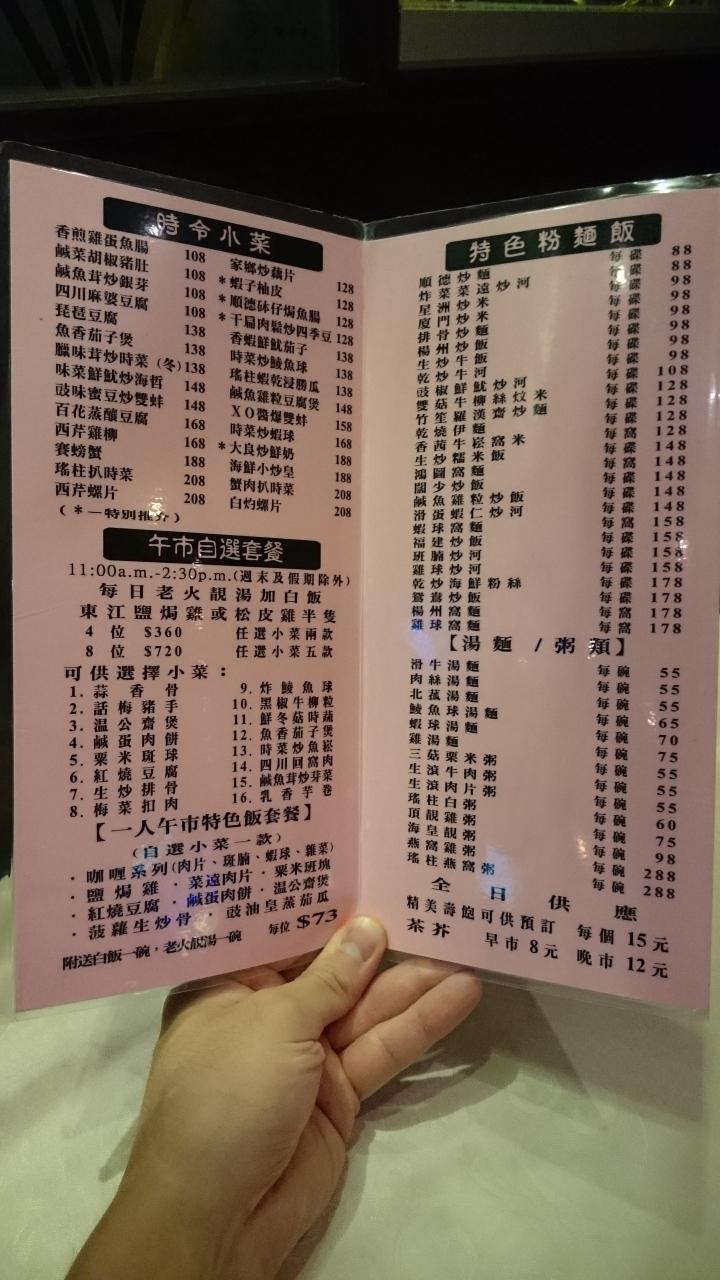 時令小菜
香煎雞蛋魚腸 108
鹹菜胡椒豬肚 108
鹹魚茸炒銀芽 108
四川麻婆豆腐 108
琵琶豆腐 138
魚香茄子煲 138
臘味茸炒時菜(冬) 138
味菜鮮魷炒海哲 148
豉味蜜豆炒雙蚌 148
百花蒸釀豆腐 168
西芹雞柳 168
賽螃蟹 188
瑤柱扒時菜 208
西芹螺片 208
(*—特別推介)
家鄉炒藕片 128
*蝦子柚皮 128
*順德砵仔焗魚腸 128
*干扁肉鬆炒四季豆 128
香蝦鮮魷茄子 138
時菜炒鯪魚球 138
瑤柱蝦乾浸勝瓜 138
鹹魚雞粒豆腐煲 148
XO醬爆雙蚌 158
時菜炒蝦球 168
*大良炒鮮奶 188
海鮮小炒皇 188
蟹肉扒時菜 208
白灼螺片 208
午市自選套餐
11:00a.m.-2:30p.m.(週末及假期除外)
每日老火靚湯加白飯
東江鹽焗雞或松皮雞半隻
4 位 $360 任選小菜兩款
8 位 $720 任選小菜五款
可供選擇小菜：
1. 蒜香骨
2. 話梅豬手
3. 溫公齋煲
4. 鹹蛋肉餅
5. 粟米斑球
6. 紅燒豆腐
7. 生炒排骨
8. 梅菜扣肉
9. 炸鯪魚球
10. 黑椒牛柳粒
11. 鮮冬菇時蔬
12. 魚香茄子煲
13. 時菜炒魚崧
14. 四川回窩肉
15. 鹹魚茸炒芽菜
16. 乳香芋卷
【一人午市特色飯套餐】
(自選小菜一款)
·咖喱系列(肉片、斑腩、蝦球、雜菜)
·鹽焗雞·菜遠肉片·粟米班塊
·紅燒豆腐·鹹蛋肉餅·溫公齋煲
·菠蘿生炒骨·豉油皇蒸茄瓜
附送白飯一碗，老火靚湯一碗 每位 $73
特色粉麵飯
順德炒麵 每碟 88
炸菜菜遠炒河 每碟 88
星洲炒米 每碟 98
廈門炒米 每碟 98
排骨炒麵 每碟 98
楊州炒飯 每碟 98
生炒牛飯 每碟 98
乾炒牛河 每碟 98
豉椒鮮魷炒河 每碟 108
雙菇牛柳絲炆米 每碟 128
竹笙羅漢齋炒麵 每碟 128
乾燒伊麵 每碟 128
香茜牛崧窩米 每窩 128
生炒糯米飯 每碟 148
鴻圖窩麵 每窩 148
闊少炒飯 每碟 148
鹹魚雞粒炒飯 每碟 148
滑蛋蝦仁炒河 每碟 148
蝦球窩麵 每窩 158
福建炒飯 每碟 158
班腩炒河 每碟 158
雞球炒河 每碟 158
乾炒海鮮粉絲 每碟 178
鴛鴦炒飯 每碟 178
楊州窩麵 每窩 178
雞球窩麵 每窩 178
【湯麵 / 粥類】
滑牛湯麵 每碗 55
肉絲湯麵 每碗 55
北菰湯麵 每碗 55
鯪魚球湯麵 每碗 65
蝦球湯麵 每碗 70
雞湯麵 每碗 75
三菇粟米粥 每碗 55
生滾牛肉粥 每碗 55
生滾肉片粥 每碗 55
瑤柱白粥 每碗 60
頂靚雞粥 每碗 75
海皇靚粥 每碗 98
燕窩雞粥 每碗 288
瑤柱燕窩粥 每碗 288
全日供應
精美壽飽可供預訂 每個 15元
茶芥 早市 8元 晚市 12元